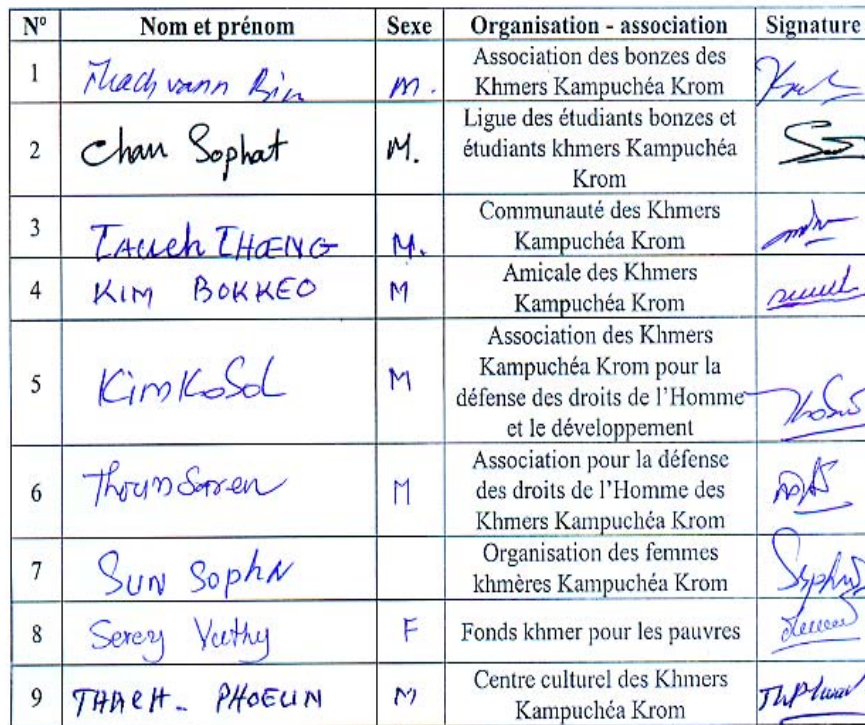 Nº Nom et prénom Sexe Organisation - association Signature
1 Thach vann Rin M. Association des bonzes des
Khmers Kampuchéa Krom
2 Chau Sophat M. Ligue des étudiants bonzes et
étudiants khmers Kampuchéa
Krom
3 M. Communauté des Khmers
Kampuchéa Krom
4 KIM BOKKEO M Amicale des Khmers
Kampuchéa Krom
5 Kim KoSol M Association des Khmers
Kampuchéa Krom pour la
défense des droits de l'Homme
et le développement
6 M Association pour la défense
des droits de l'Homme des
Khmers Kampuchéa Krom
7 SUN Organisation des femmes
khmères Kampuchéa Krom
8 Serey Vuthy F Fonds khmer pour les pauvres
9 THACH- PHOEUN M Centre culturel des Khmers
Kampuchéa Krom